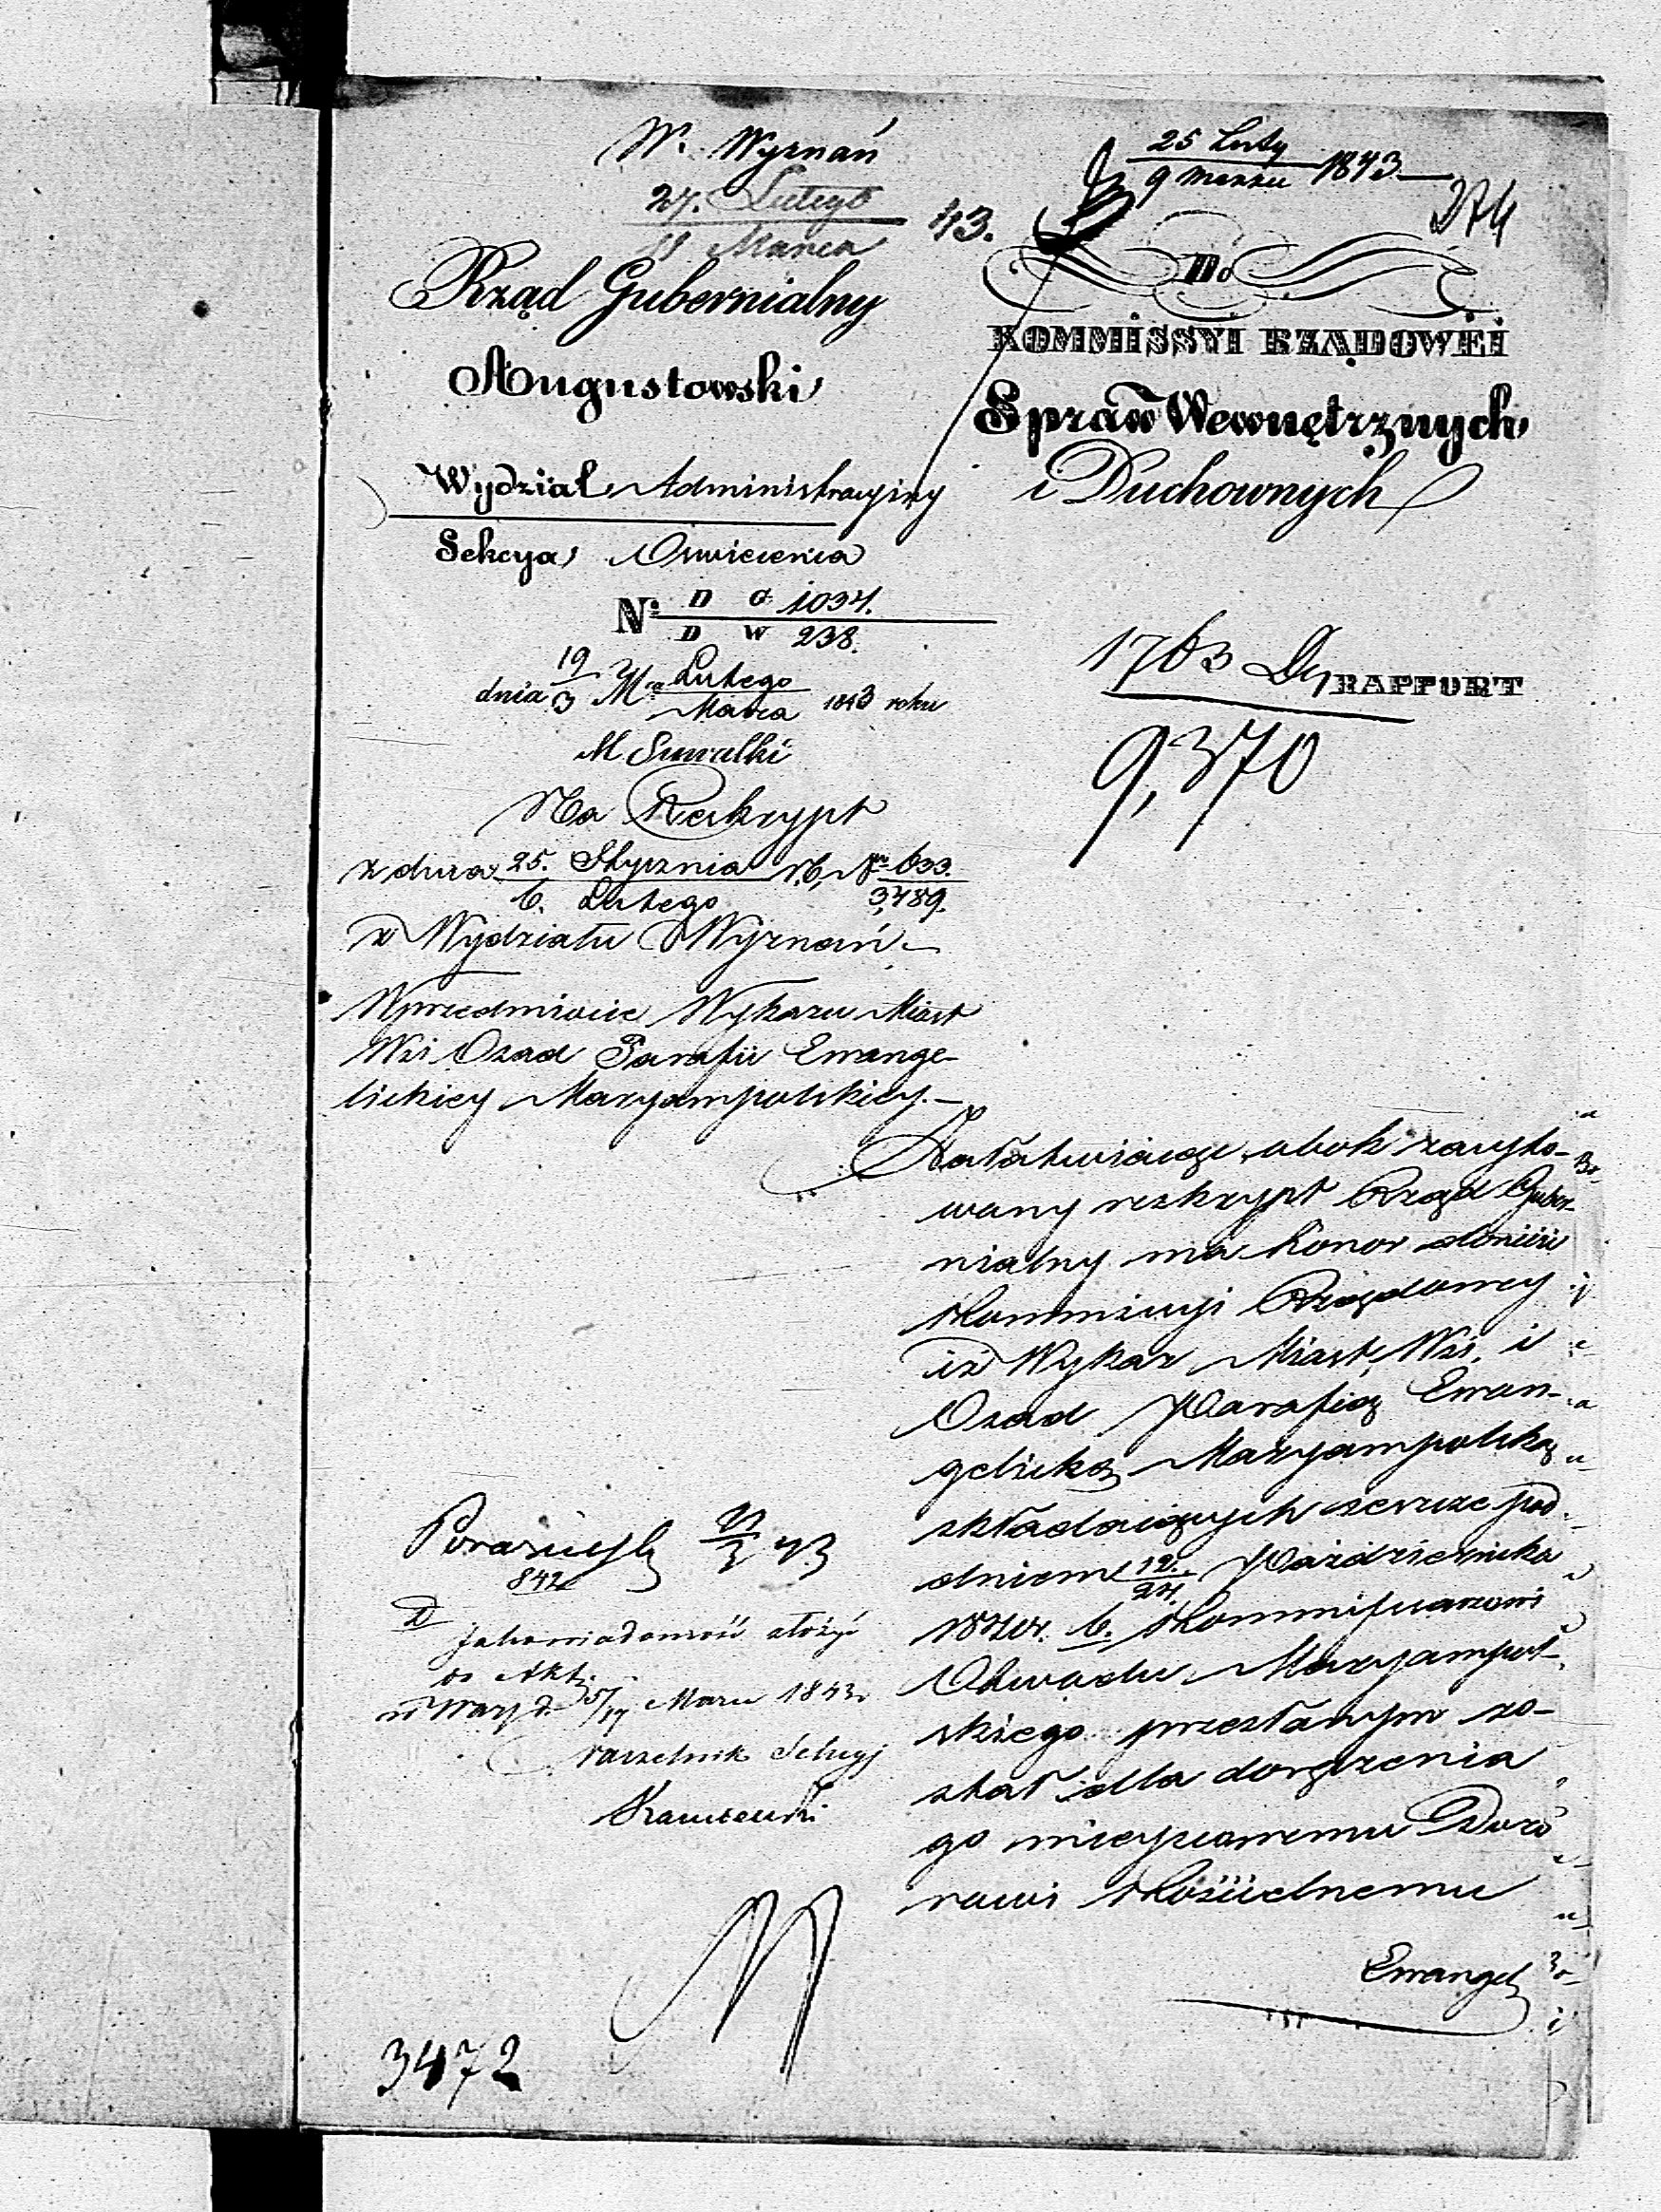 W. Wyznań
27. Lutego
11 Marca
43.
25 Luty
9 Marca 1843
274
Rząd Gubernialny
Augustowski
Wydział Administracyjny
Sekcya Oswiecenia
No D G 1034.
D W 238.
dnia 19/3 Mca Lutego
Marca 1843 roku
M Suwałki
Do
KOMMISSYI RZĄDOWÉI
Spraw Wewnętrznych
i Duchownych
1763
RAPPORT
9,370
Na Reskrypt
z dnia 25. Stycznia r.b. Nr 633.
6. Lutego 3,489.
z Wydziału Wyznań
Wprzedmiocie Wykazu Miast
Wsi Osad Parafii Ewange-
lickiey Maryampolskiey.
Załatwiaiąc obok zacyto-
wany reskrypt Rząd Guber-
nialny ma honor donieść
Kommissyi Rządowey
iż Wykaz Miast, Wsi, i
Osad Parafią Ewan-
gelicką Maryampolską
składaiących ieszcze pod
dniem 12./24. Pazdziernika
1840r. b. Kommissarzowi
Obwodu Maryampol-
skiego przesłanym zo-
stał dla doręczenia
go mieyscowemu Dozo
rowi Kościelnemu
Ewangel
842
Za wiadomość złożyć
do Akt.
w Warsz d. 5/17 Marca 1843r
Naczelnik Sekcyi
3472